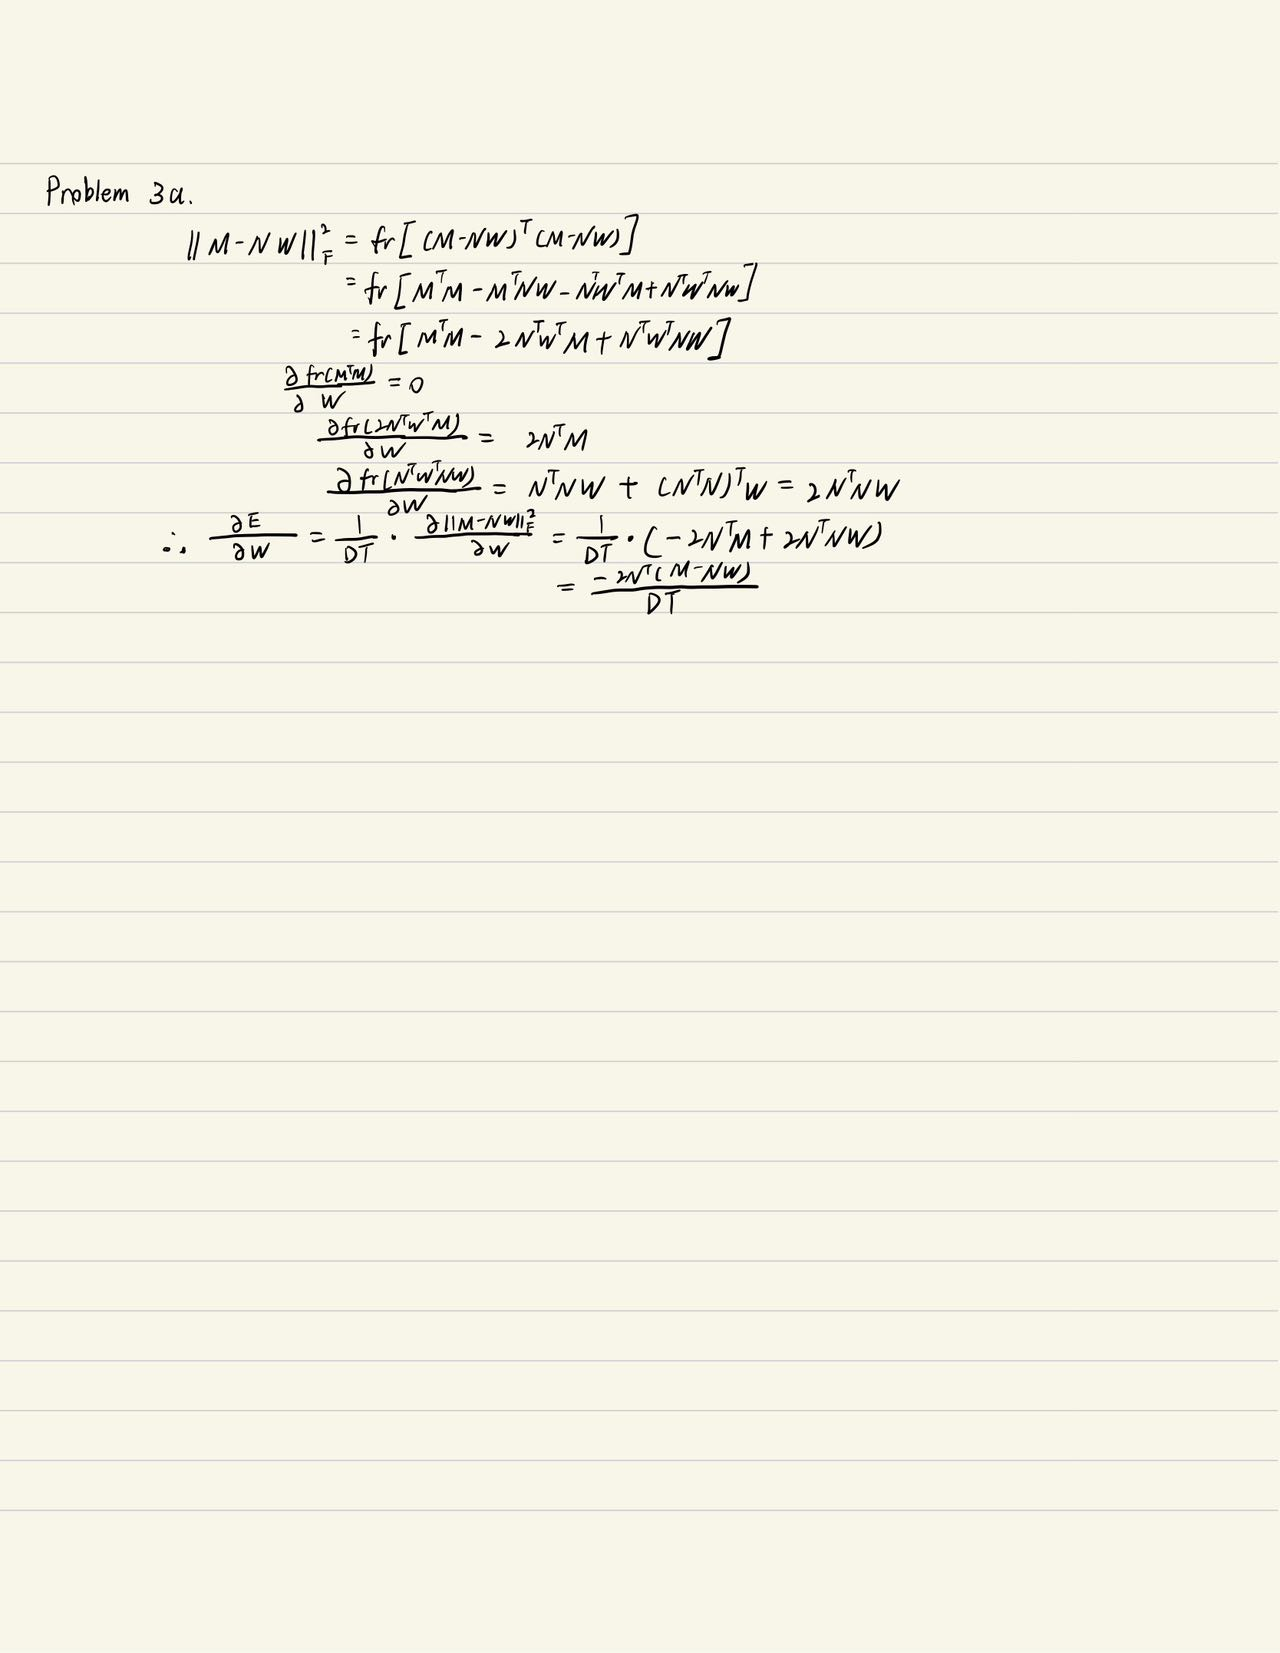 Problem 3a.
||M-NW||²_F = fr[(M-NW)ᵀ(M-NW)]
= fr[MᵀM - MᵀNW - NᵀWᵀM + NᵀWᵀNW]
= fr[MᵀM - 2NᵀWᵀM + NᵀWᵀNW]
∂fr(MᵀM)/∂W = 0
∂fr(2NᵀWᵀM)/∂W = 2NᵀM
∂fr(NᵀWᵀNW)/∂W = NᵀNW + (NᵀN)ᵀW = 2NᵀNW
∴ ∂E/∂W = 1/DT · ∂||M-NW||²_F/∂W = 1/DT · (-2NᵀM + 2NᵀNW)
= -2Nᵀ(M-NW)/DT